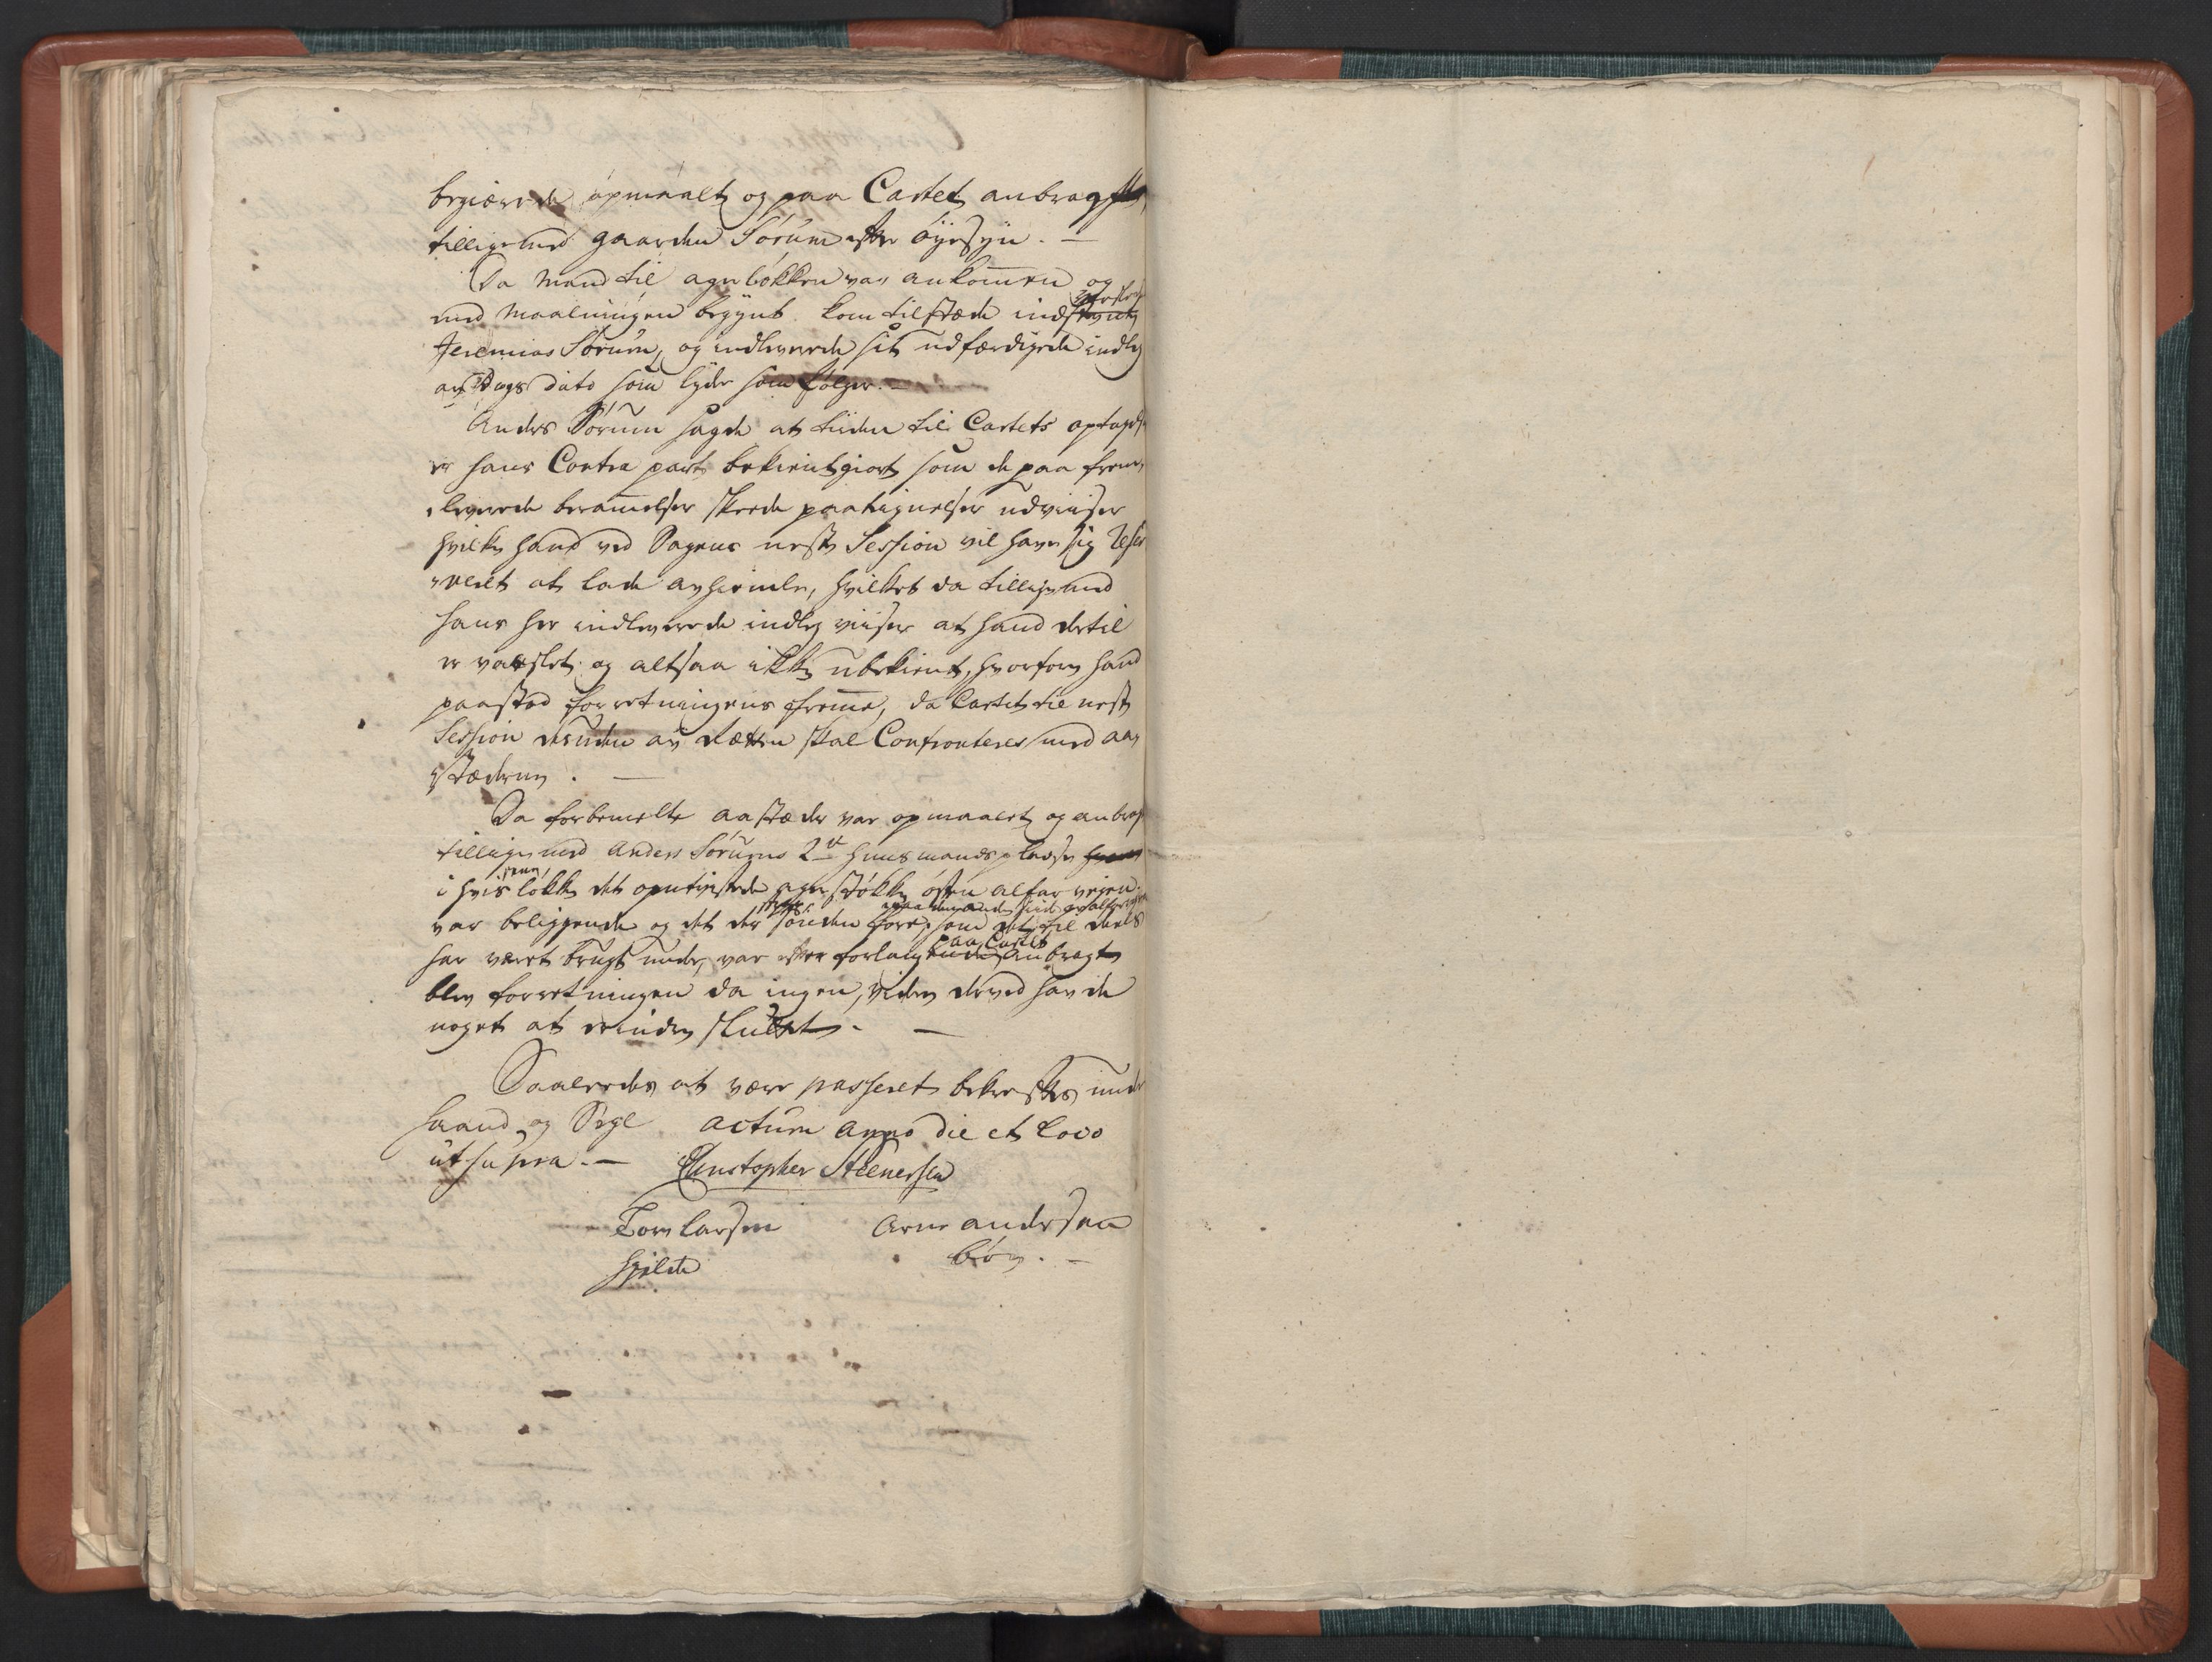 begiærede opmaalt og paa Cartet anbragt
tilligemed gaarden Sørum efter øyesyn. —
Da Mand til agerløkken var ankommen og
med Maalningen begynt kom tilstæde
Jeremias Sørum, og indleverede sit udfærdigede indleg
av Dags dato som lyder som følger. —
Anders Sørum sagde at tiiden til Cartets optagelse
er hans Contra part bekientgiort som de paa frem¬
leverede beramelser skeede paategnelser udviiser
hvilke hand ved Sagens neste Session vil have sig Reser
veret at lade avhiemle, hvilket da tilligemed
hans her indleverede indleg viiser at hand dertil
er varslet og altsaa ikke ubekient, hvorfore hand
paastod forretningens fremme, da Cartet til neste
Session desuden av Rætten skal Confronteres med aa¬
stæderne. —
Da forbemelte aastæder var opmaalet og anbragt
tilligemed Anders Sørums 2de Huusmandspladse
i hvis løkke det omtvistede agerstøkke østen alfar veien
var beliggende og det der
paa Cartet
har været brugt under, var efter forlangende anbragt
blev forretningen da ingen, viden derved havde
noget at erindre sluttet. —
Saaledes at være passeret bekræftes under
Haand og Segl actum anno die et loco
ut supra. — Christopher Steenersen
Tore Larsen Arne Andersen
Hvilde Bøe. —